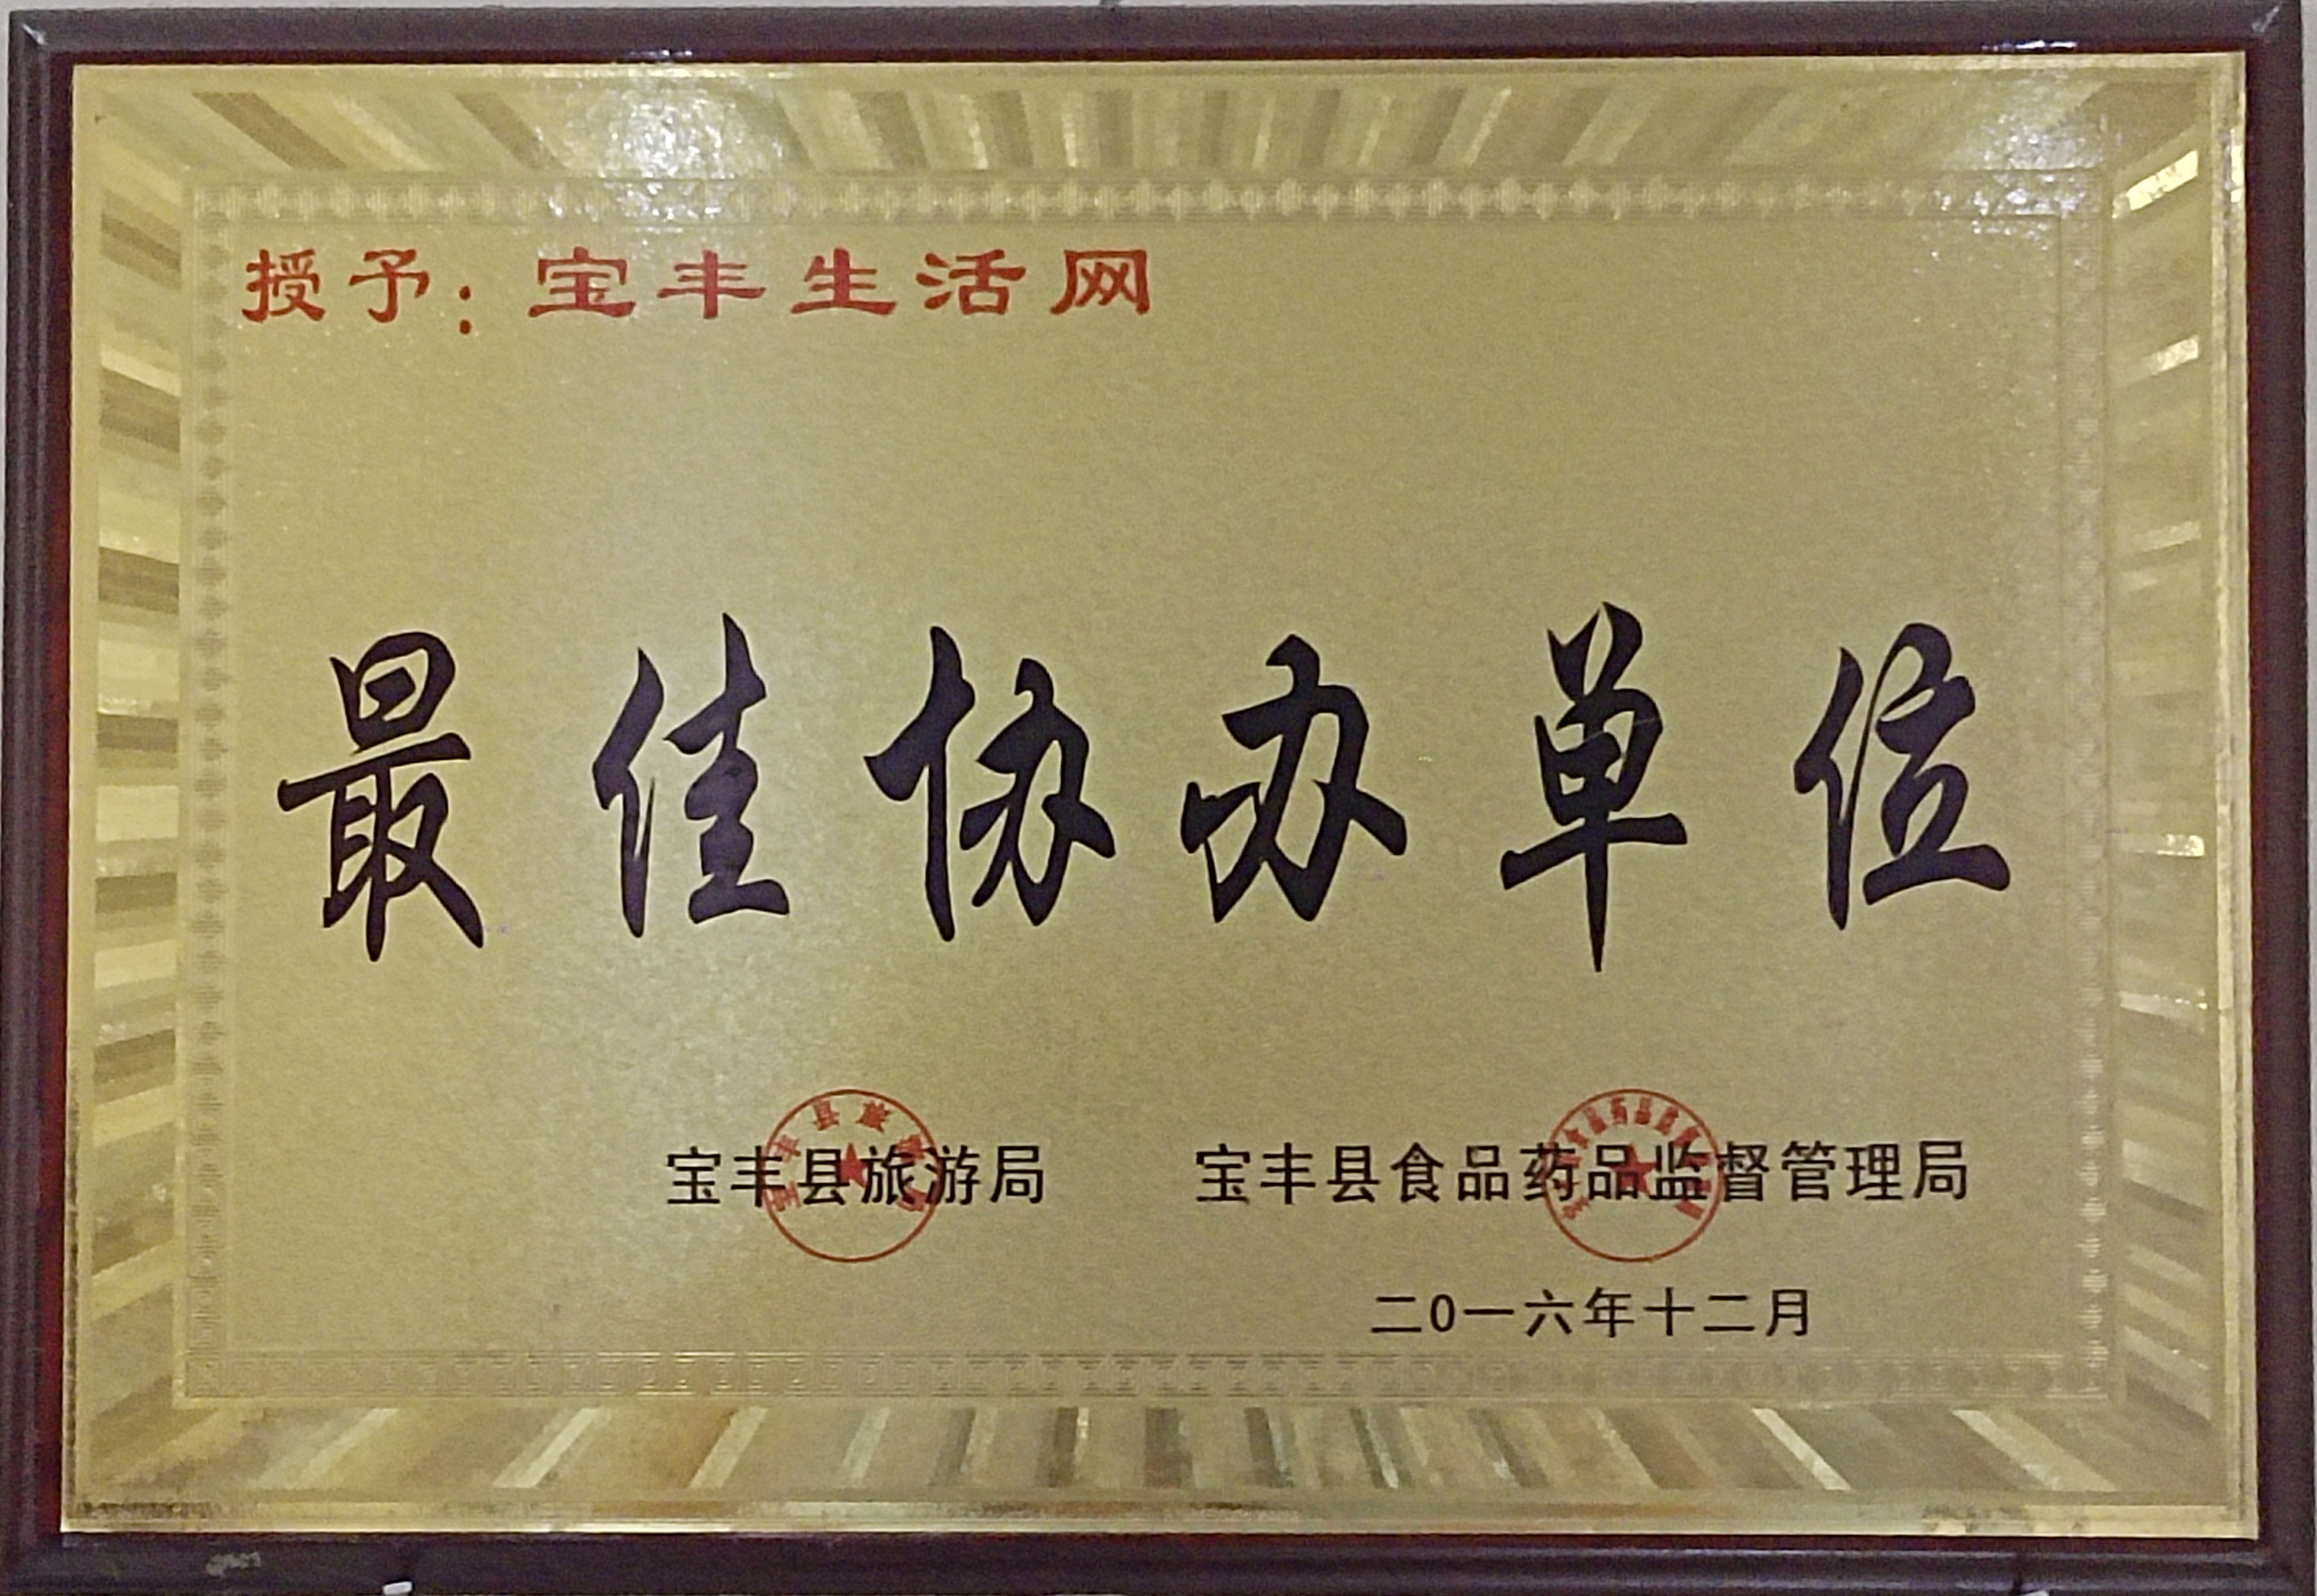 授予：宝丰生活网
最佳协办单位
宝丰县旅游局 宝丰县食品药品监督管理局
二0一六年十二月